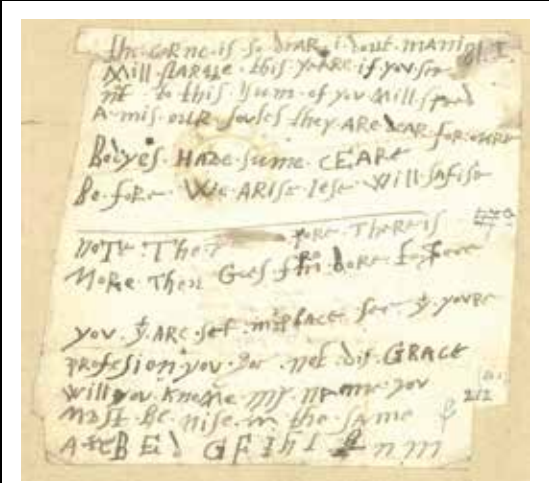 the . corne . is . so dear . i dout mani
will starve . this yeare if you see
nt to this sum of you will speed
A mis our soules they ARe dear . for oure
Bodyes . HAVe sume . CEARe
Be . fore . We . ARise . lese . will safise
noTe . The . pore . There is
More . Then Goes . from . dore . to dore
you . yt . ARe . set . in . place . see . yt . youre
profesion you doe . not . dis . GRACe
will you knowe my name you
mast . be . wise . in the same